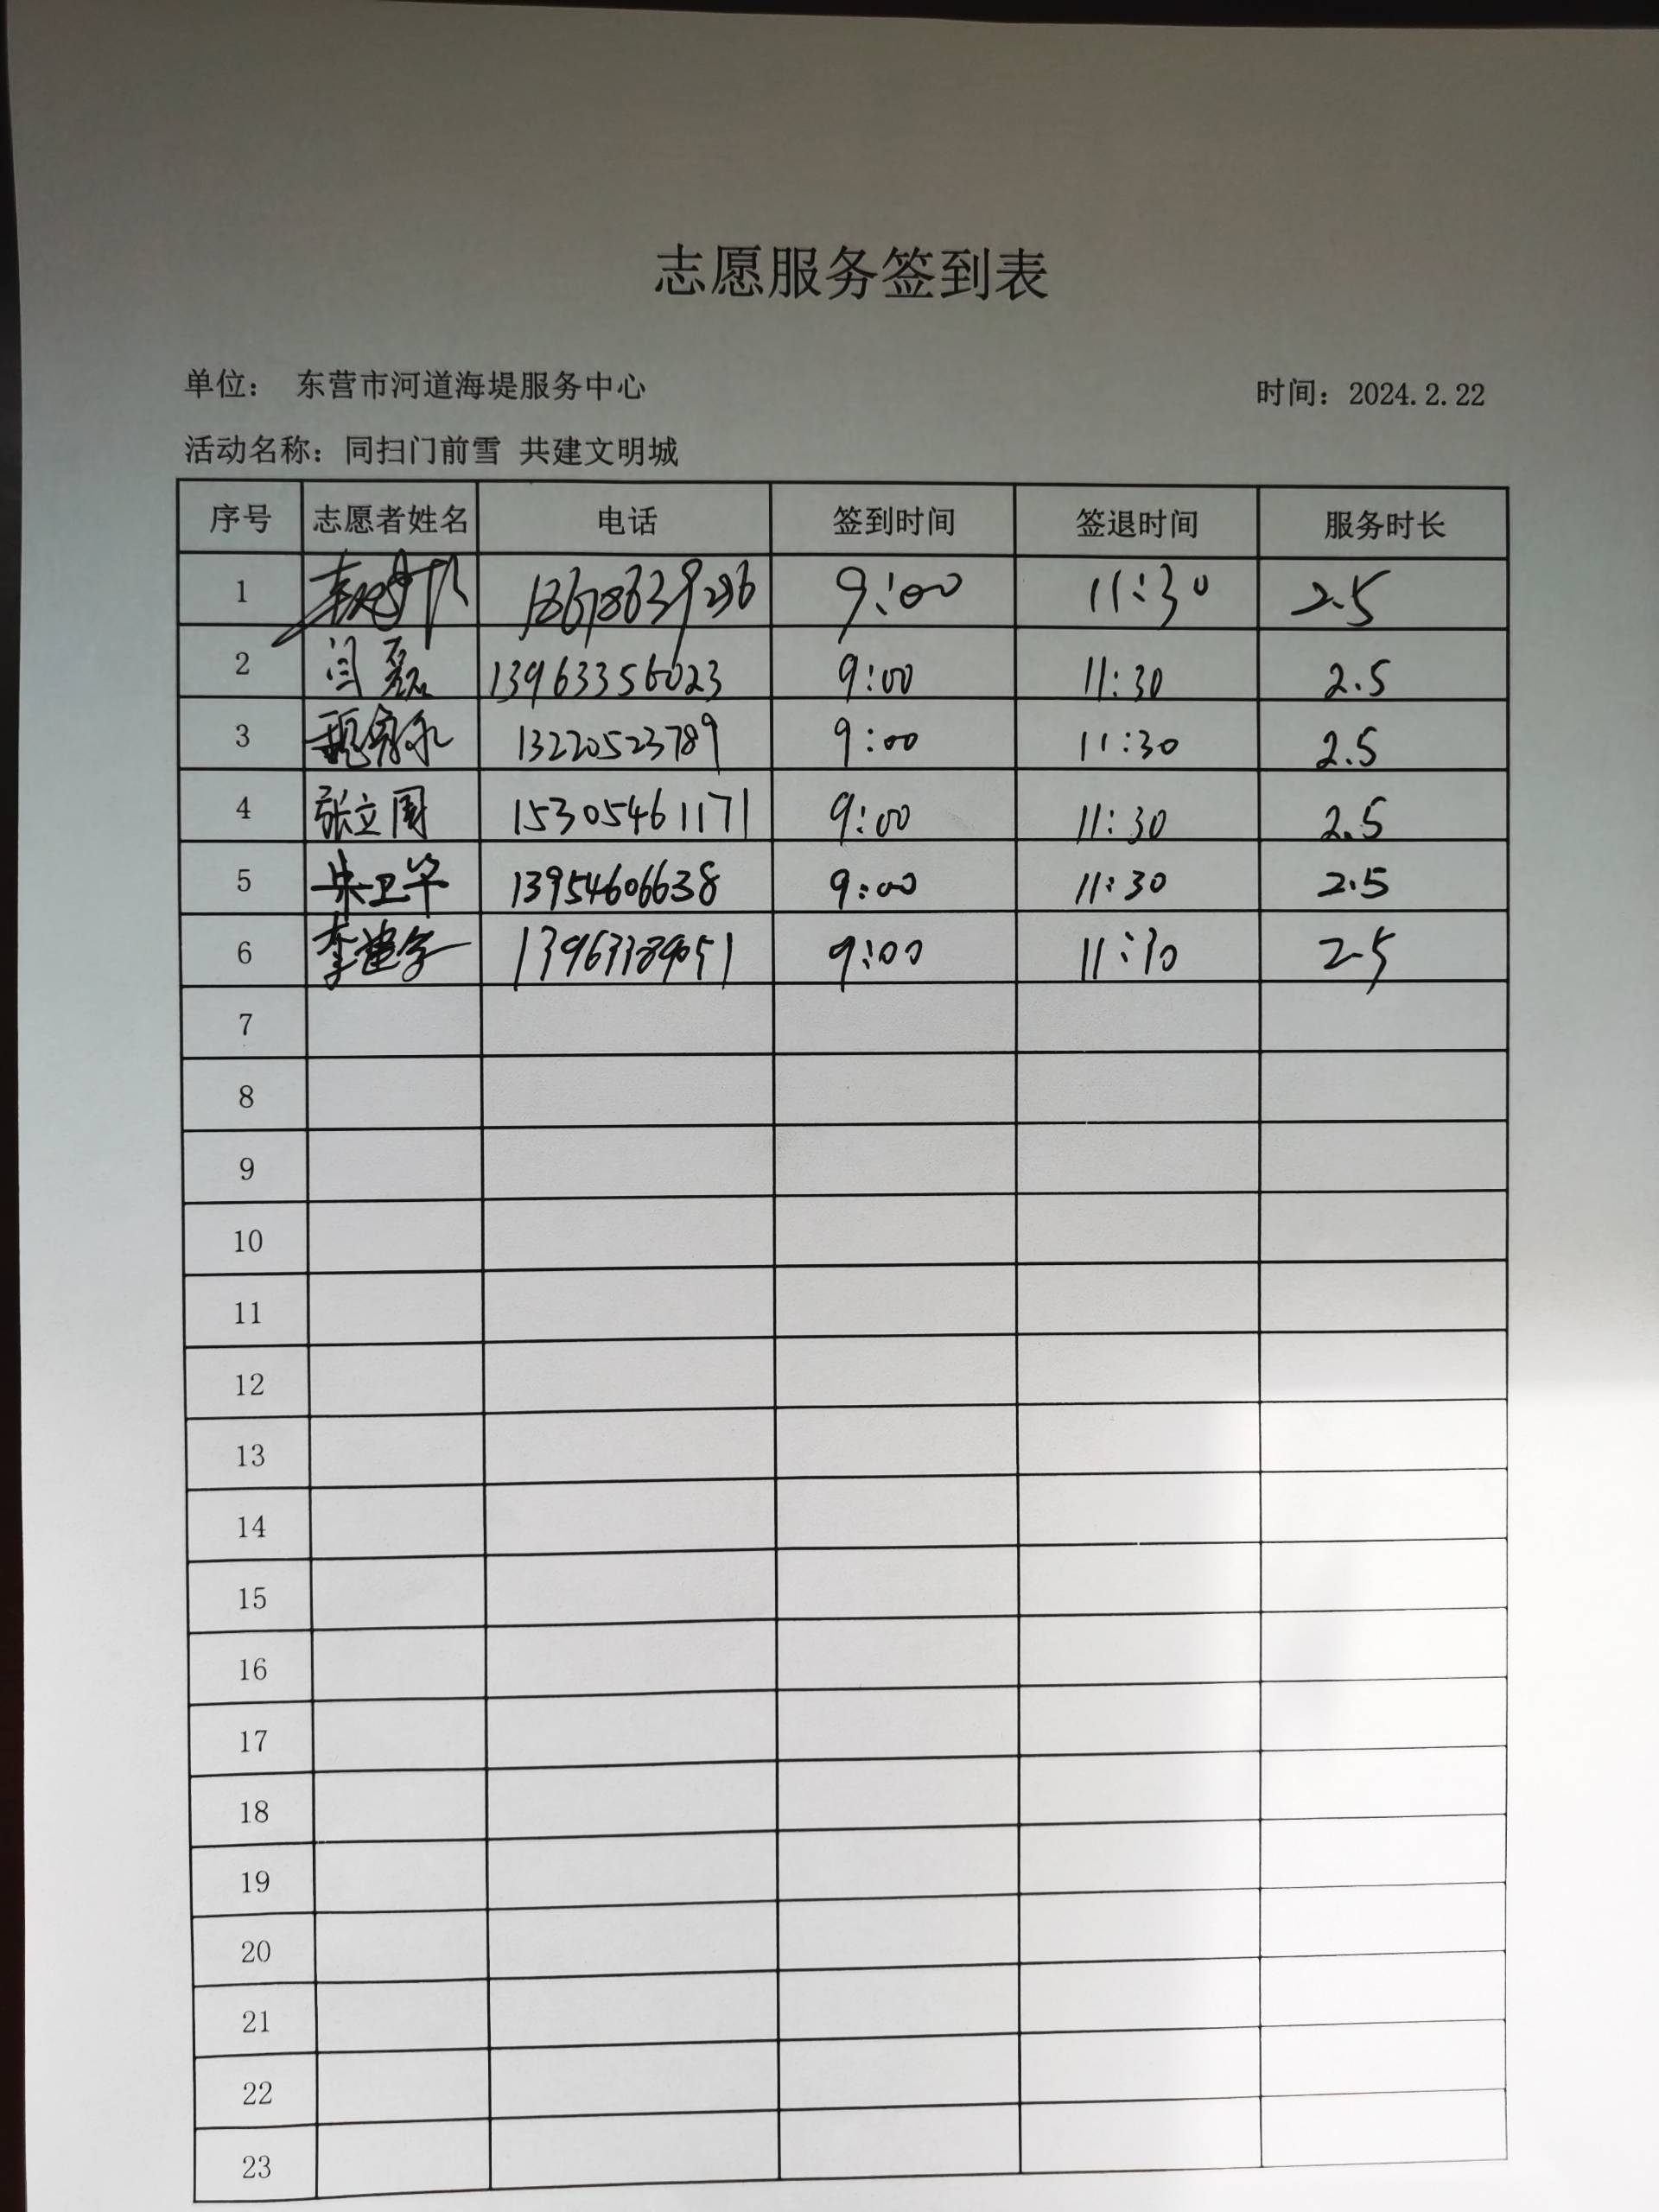 志愿服务签到表
单位： 东营市河道海堤服务中心 时间：2024.2.22
活动名称：同扫门前雪 共建文明城
序号 志愿者姓名 电话 签到时间 签退时间 服务时长
1 18678639286 9:00 11:30 2.5
2 闫磊 13963356023 9:00 11:30 2.5
3 13220523789 9:00 11:30 2.5
4 张立国 15305461171 9:00 11:30 2.5
5 朱卫华 13954606638 9:00 11:30 2.5
6 李建学 13963389051 9:00 11:30 2.5
7
8
9
10
11
12
13
14
15
16
17
18
19
20
21
22
23